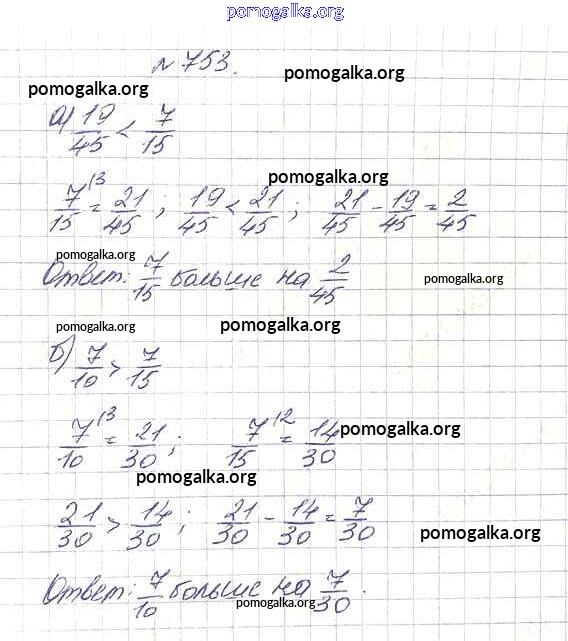 pomogalka.org
№753.
pomogalka.org
pomogalka.org
а) 19/45 < 7/15
pomogalka.org
7/15 (3 = 21/45; 19/45 < 21/45; 21/45 - 19/45 = 2/45
pomogalka.org
Ответ: 7/15 больше на 2/45
pomogalka.org
pomogalka.org
pomogalka.org
б) 7/10 > 7/15
7/10 (3 = 21/30; 7/15 (2 = 14/30
pomogalka.org
pomogalka.org
21/30 > 14/30; 21/30 - 14/30 = 7/30
pomogalka.org
Ответ: 7/10 больше на 7/30.
pomogalka.org